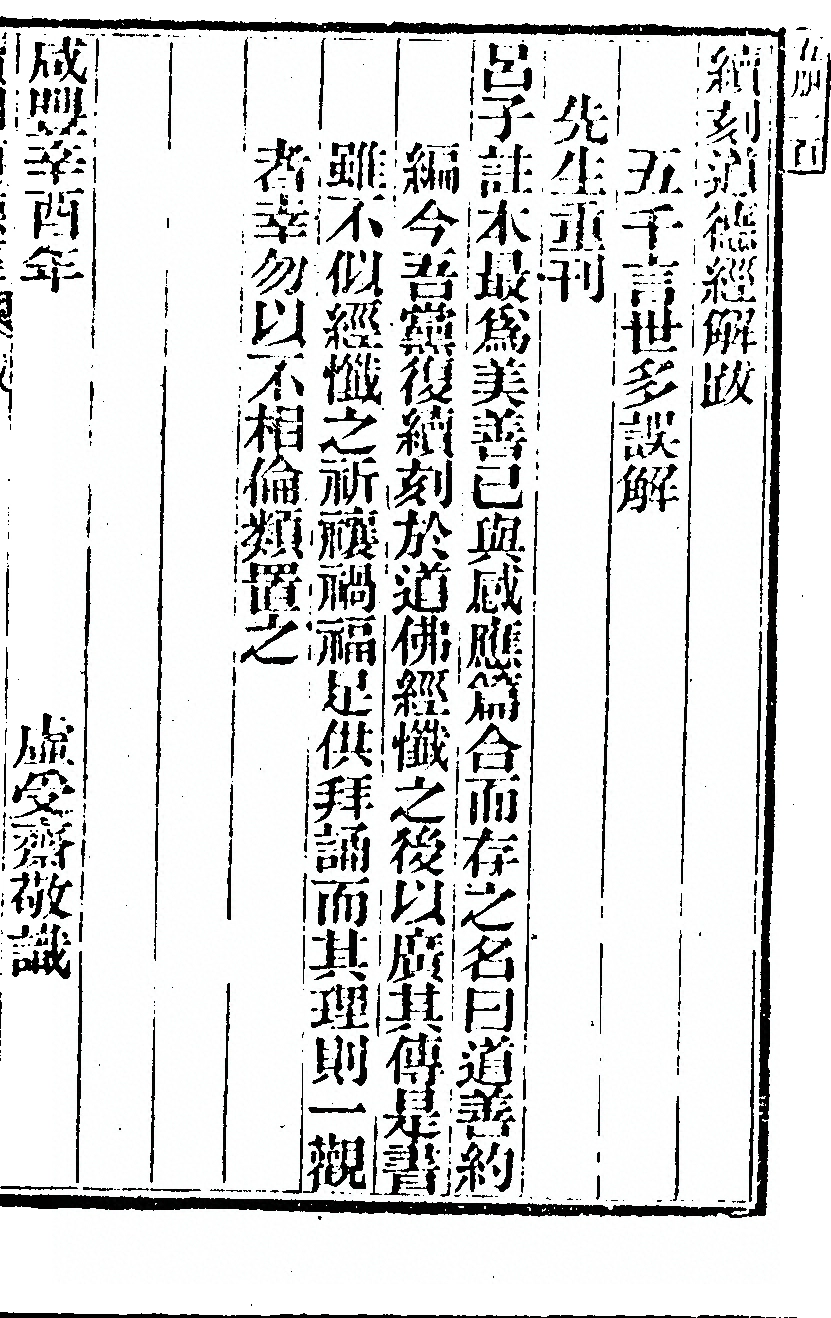 續刻道德經解跋
五千言世多誤解
先生重刊
呂子註本最爲美善已與感應篇合而存之名曰道善約
編今吾黨復續刻於道佛經懺之後以廣其傳是書
雖不似經懺之祈禳禍福足供拜誦而其理則一觀
者幸勿以不相倫類置之
咸豐辛酉年
虛受齋敬識